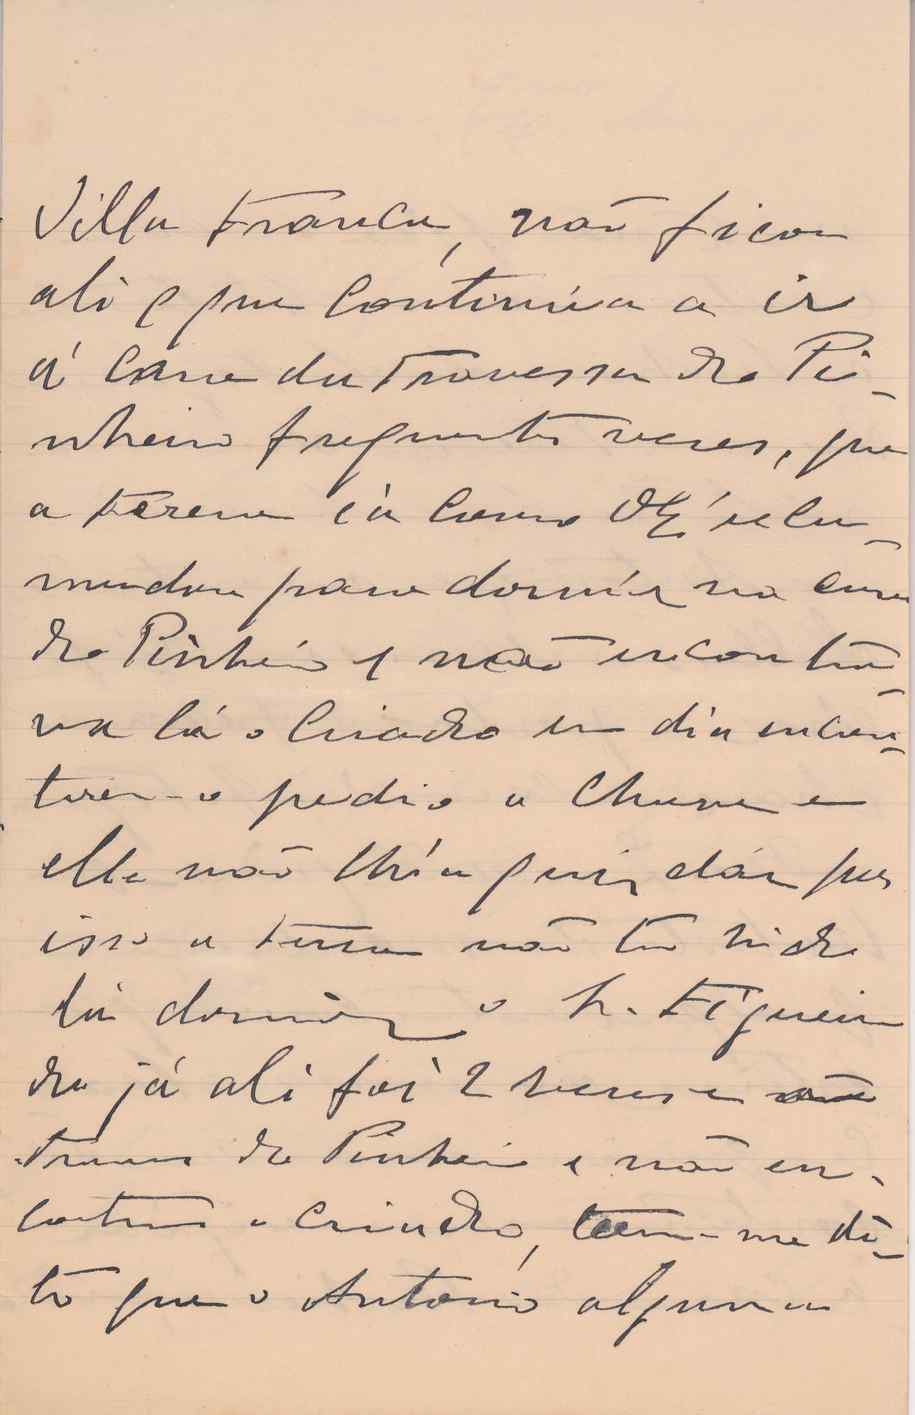 Villa Franca, não ficou
ali e que continúa a ir
á casa da travessa do Pi-
nheiro frequentes vezes, que
a Tereza ia como
mandou para dormir na casa
do Pinheiro e não encontra-
va lá o criado um dia encon-
trou-o pedio a chave e
elle não lh'a quiz dár por
isso a Tereza não tem hido
lá dormir, o Sr. Figueire-
do já ali foi 2 vezes a
trava do Pinheiro e não en-
controu o criado, teem-me di-
to que o António alguma